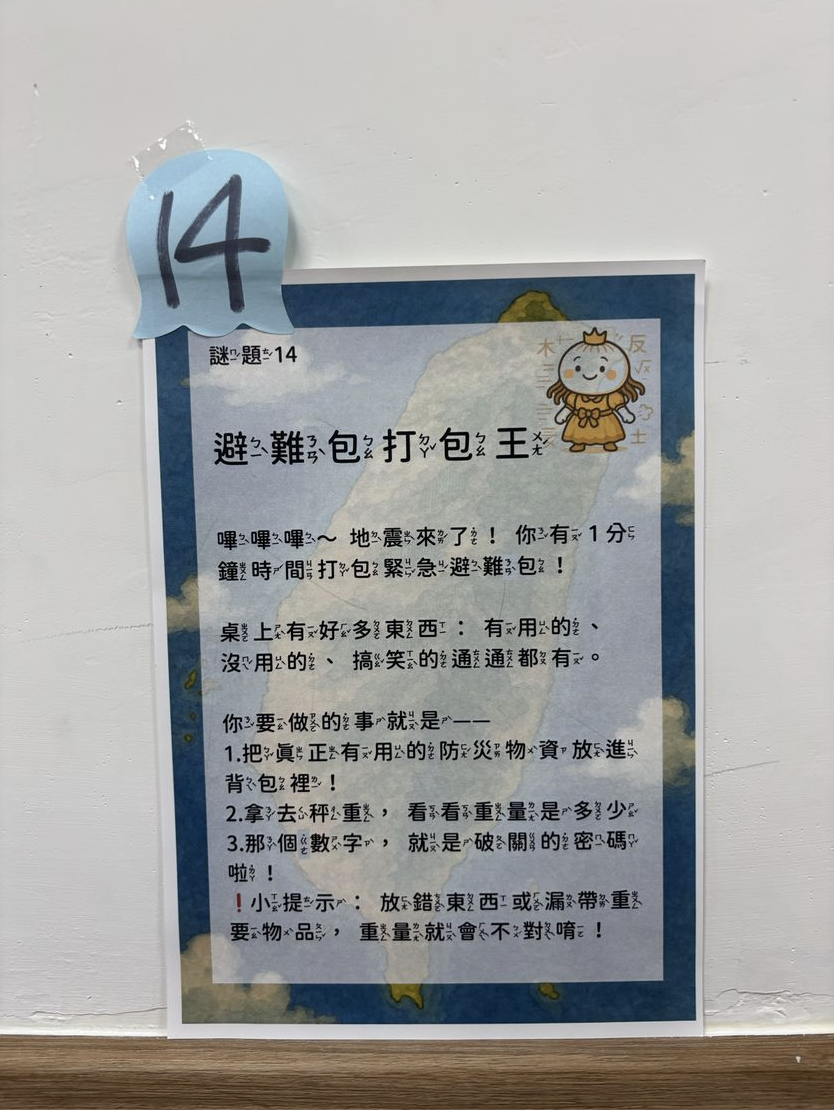 14
謎題14
木
反
√x
土
避難包打包王
嗶嗶嗶～ 地震來了！ 你有1分
鐘時間打包緊急避難包！
桌上有好多東西： 有用的、
沒用的、 搞笑的通通都有。
你要做的事就是——
1.把真正有用的防災物資放進
背包裡！
2.拿去秤重， 看看重量是多少
3.那個數字， 就是破關的密碼
啦！
❗小提示： 放錯東西或漏帶重
要物品， 重量就會不對唷！